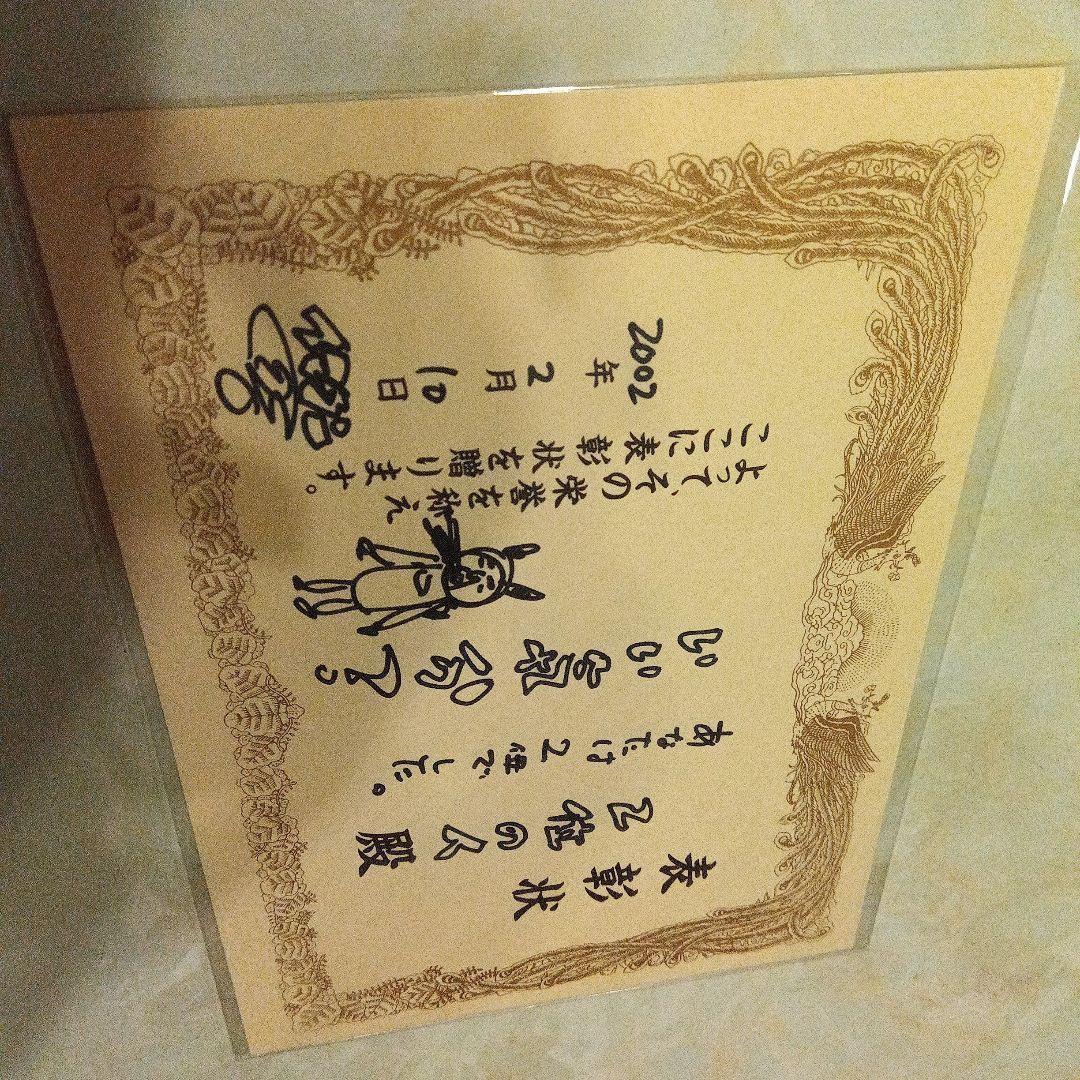 表彰状
2位の人殿
あなたは2位でした。
いい気家?
よって、その栄誉を称え
ここに表彰状を贈ります。
2002年2月10日